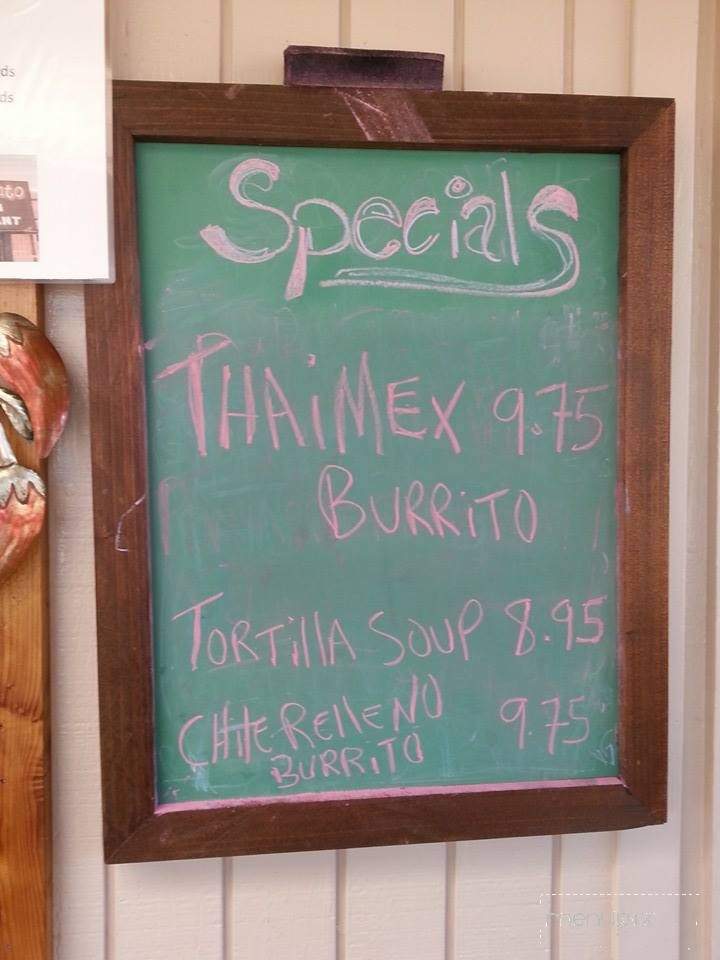 ds
ds
nto
ANT
Specials
THAiMEX 9.75
BURRiTO
TORTillA SOUP 8.95
CHilE RElleNO 9.75
BURRiTO
menupix